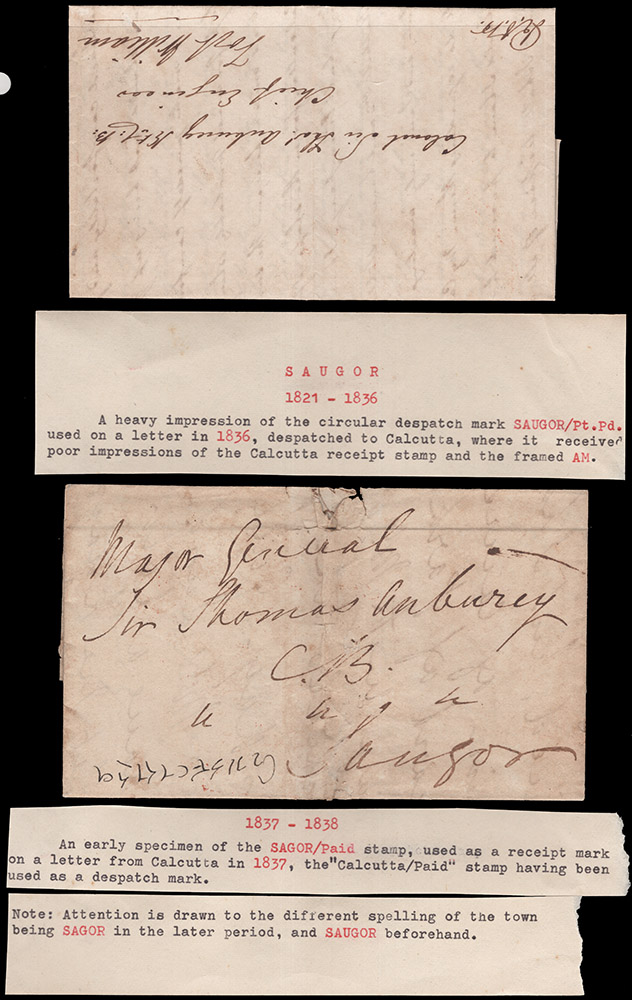 Colonel Sir Thos. Anburey Kt. C:B:
Chief Engineer
Fort William
SAUGOR
1821 - 1836
A heavy impression of the circular despatch mark SAUGOR/Pt.Pd.
used on a letter in 1836, despatched to Calcutta, where it received
poor impressions of the Calcutta receipt stamp and the framed AM.
Major General
Sir Thomas Anburey
C.B.
Saugor
1837 - 1838
An early specimen of the SAGOR/Paid stamp, used as a receipt mark
on a letter from Calcutta in 1837, the"Calcutta/Paid" stamp having been
used as a despatch mark.
Note: Attention is drawn to the different spelling of the town
being SAGOR in the later period, and SAUGOR beforehand.